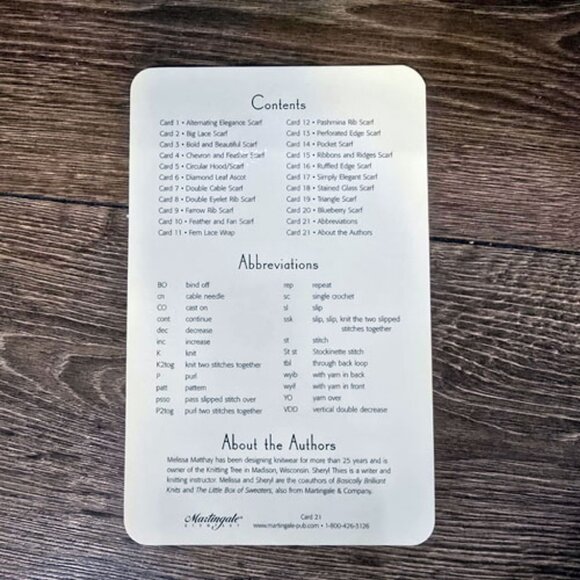 Contents
Card 1 • Alternating Elegance Scarf
Card 2 • Big Lace Scarf
Card 3 • Bold and Beautiful Scarf
Card 4 • Chevron and Feather Scarf
Card 5 • Circular Hood/Scarf
Card 6 • Diamond Leaf Ascot
Card 7 • Double Cable Scarf
Card 8 • Double Eyelet Rib Scarf
Card 9 • Farrow Rib Scarf
Card 10 • Feather and Fan Scarf
Card 11 • Fern Lace Wrap
Card 12 • Pashmina Rib Scarf
Card 13 • Perforated Edge Scarf
Card 14 • Pocket Scarf
Card 15 • Ribbons and Ridges Scarf
Card 16 • Ruffled Edge Scarf
Card 17 • Simply Elegant Scarf
Card 18 • Stained Glass Scarf
Card 19 • Triangle Scarf
Card 20 • Blueberry Scarf
Card 21 • Abbreviations
Card 21 • About the Authors
Abbreviations
BO bind off
cn cable needle
CO cast on
cont continue
dec decrease
inc increase
K knit
K2tog knit two stitches together
P purl
patt pattern
psso pass slipped stitch over
P2tog purl two stitches together
rep repeat
sc single crochet
sl slip
ssk slip, slip, knit the two slipped
stitches together
st stitch
St st Stockinette stitch
tbl through back loop
wyib with yarn in back
wyif with yarn in front
YO yarn over
VDD vertical double decrease
About the Authors
Melissa Matthay has been designing knitwear for more than 25 years and is
owner of the Knitting Tree in Madison, Wisconsin. Sheryl Thies is a writer and
knitting instructor. Melissa and Sheryl are the coauthors of Basically Brilliant
Knits and The Little Box of Sweaters, also from Martingale & Company.
Martingale
& COMPANY
Card 21
www.martingale-pub.com • 1-800-426-3126